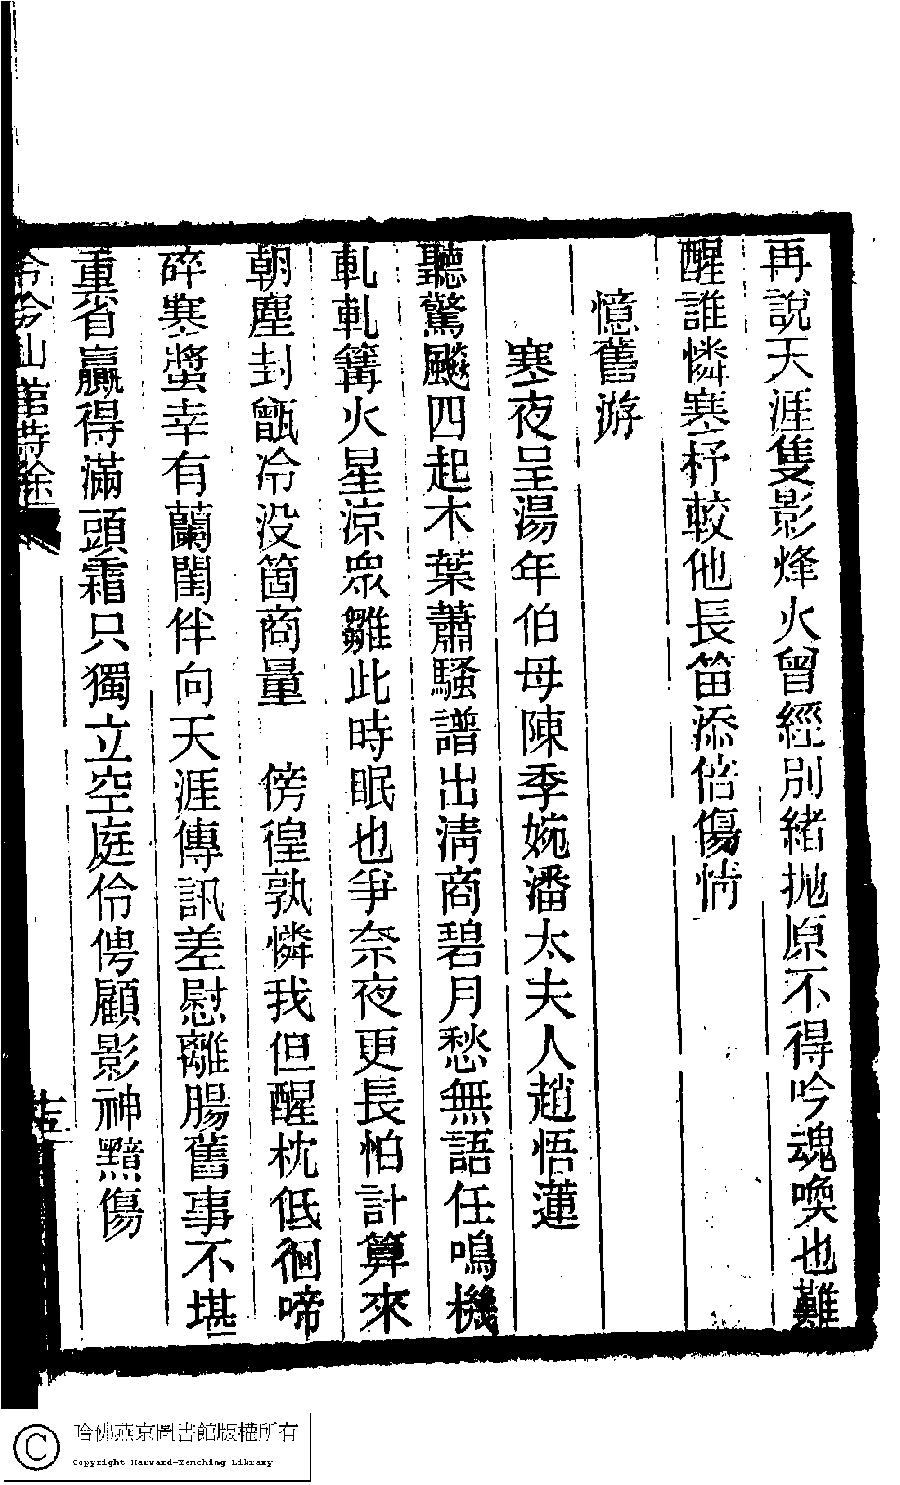 再說天涯隻影烽火曾經別緒拋原不得吟魂喚也難
醒誰憐寒杼較他長笛添倍傷情
憶舊游
寒夜呈湯年伯母陳季婉潘太夫人趙悟蓮
聽驚颷四起木葉蕭騷譜出清商碧月愁無語任鳴機
軋軋篝火星涼眾雛此時眠也爭奈夜更長怕計算來
朝塵封甑冷没箇商量　傍徨孰憐我但醒枕低徊啼
碎寒螿幸有蘭閨伴向天涯傳訊差慰離腸舊事不堪
重省贏得滿頭霜只獨立空庭伶俜顧影神黯傷
冷吟仙館詩餘
十五
哈佛燕京圖書館版權所有
Copyright Harvard-Yenching Library